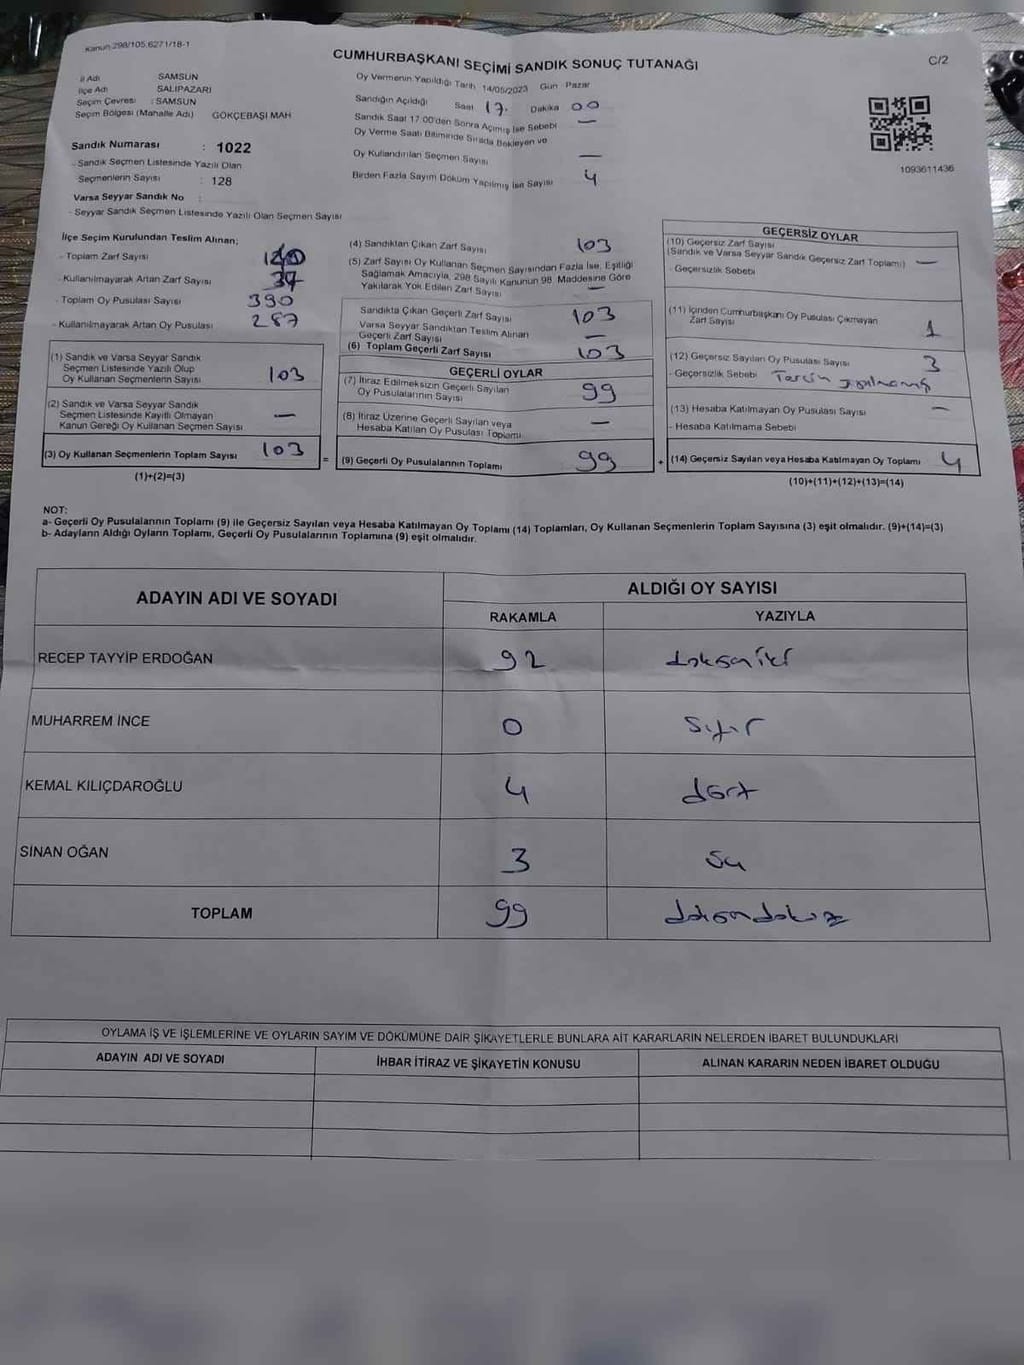 Kanun 298/105,6271/18-1
CUMHURBAŞKANI SEÇİMİ SANDIK SONUÇ TUTANAĞI
C/2
İl Adı SAMSUN
İlçe Adı SALIPAZARI
Seçim Çevresi : SAMSUN
Seçim Bölgesi (Mahalle Adı) GÖKÇEBAŞI MAH
Sandık Numarası : 1022
- Sandık Seçmen Listesinde Yazılı Olan
Seçmenlerin Sayısı : 128
Varsa Seyyar Sandık No :
- Seyyar Sandık Seçmen Listesinde Yazılı Olan Seçmen Sayısı
Oy Vermenin Yapıldığı Tarih 14/05/2023 Gün Pazar
Sandığın Açıldığı Saat 17. Dakika 00
Sandık Saat 17:00'den Sonra Açılmış İse Sebebi —
Oy Verme Saati Bitiminde Sırada Bekleyen ve
Oy Kullandırılan Seçmen Sayısı —
Birden Fazla Sayım Döküm Yapılmış İse Sayısı 4
1093611436
İlçe Seçim Kurulundan Teslim Alınan;
- Toplam Zarf Sayısı 140
- Kullanılmayarak Artan Zarf Sayısı 37
- Toplam Oy Pusulası Sayısı 390
- Kullanılmayarak Artan Oy Pusulası 287
(1) Sandık ve Varsa Seyyar Sandık
Seçmen Listesinde Yazılı Olup
Oy Kullanan Seçmenlerin Sayısı 103
(2) Sandık ve Varsa Seyyar Sandık
Seçmen Listesinde Kayıtlı Olmayan
Kanun Gereği Oy Kullanan Seçmen Sayısı —
(3) Oy Kullanan Seçmenlerin Toplam Sayısı 103 =
(1)+(2)=(3)
(4) Sandıktan Çıkan Zarf Sayısı 103
(5) Zarf Sayısı Oy Kullanan Seçmen Sayısından Fazla İse, Eşitliği
Sağlamak Amacıyla, 298 Sayılı Kanunun 98. Maddesine Göre
Yakılarak Yok Edilen Zarf Sayısı —
Sandıkta Çıkan Geçerli Zarf Sayısı 103
Varsa Seyyar Sandıktan Teslim Alınan
Geçerli Zarf Sayısı —
(6) Toplam Geçerli Zarf Sayısı 103
GEÇERLİ OYLAR
(7) İtiraz Edilmeksizin Geçerli Sayılan
Oy Pusulalarının Sayısı 99
(8) İtiraz Üzerine Geçerli Sayılan veya
Hesaba Katılan Oy Pusulası Toplamı —
(9) Geçerli Oy Pusulalarının Toplamı 99 +
GEÇERSİZ OYLAR
(10) Geçersiz Zarf Sayısı
(Sandık ve Varsa Seyyar Sandık Geçersiz Zarf Toplamı) —
- Geçersizlik Sebebi
(11) İçinden Cumhurbaşkanı Oy Pusulası Çıkmayan
Zarf Sayısı 1
(12) Geçersiz Sayılan Oy Pusulası Sayısı 3
- Geçersizlik Sebebi
(13) Hesaba Katılmayan Oy Pusulası Sayısı —
- Hesaba Katılmama Sebebi
(14) Geçersiz Sayılan veya Hesaba Katılmayan Oy Toplamı 4
(10)+(11)+(12)+(13)=(14)
NOT:
a- Geçerli Oy Pusulalarının Toplamı (9) ile Geçersiz Sayılan veya Hesaba Katılmayan Oy Toplamı (14) Toplamları, Oy Kullanan Seçmenlerin Toplam Sayısına (3) eşit olmalıdır. (9)+(14)=(3)
b- Adayların Aldığı Oyların Toplamı, Geçerli Oy Pusulalarının Toplamına (9) eşit olmalıdır.
ADAYIN ADI VE SOYADI
ALDIĞI OY SAYISI
RAKAMLA YAZIYLA
RECEP TAYYİP ERDOĞAN 92 doksaniki
MUHARREM İNCE 0 Sıfır
KEMAL KILIÇDAROĞLU 4 dört
SİNAN OĞAN 3
TOPLAM 99 doksandokuz
OYLAMA İŞ VE İŞLEMLERİNE VE OYLARIN SAYIM VE DÖKÜMÜNE DAİR ŞİKAYETLERLE BUNLARA AİT KARARLARIN NELERDEN İBARET BULUNDUKLARI
ADAYIN ADI VE SOYADI İHBAR İTİRAZ VE ŞİKAYETİN KONUSU ALINAN KARARIN NEDEN İBARET OLDUĞU